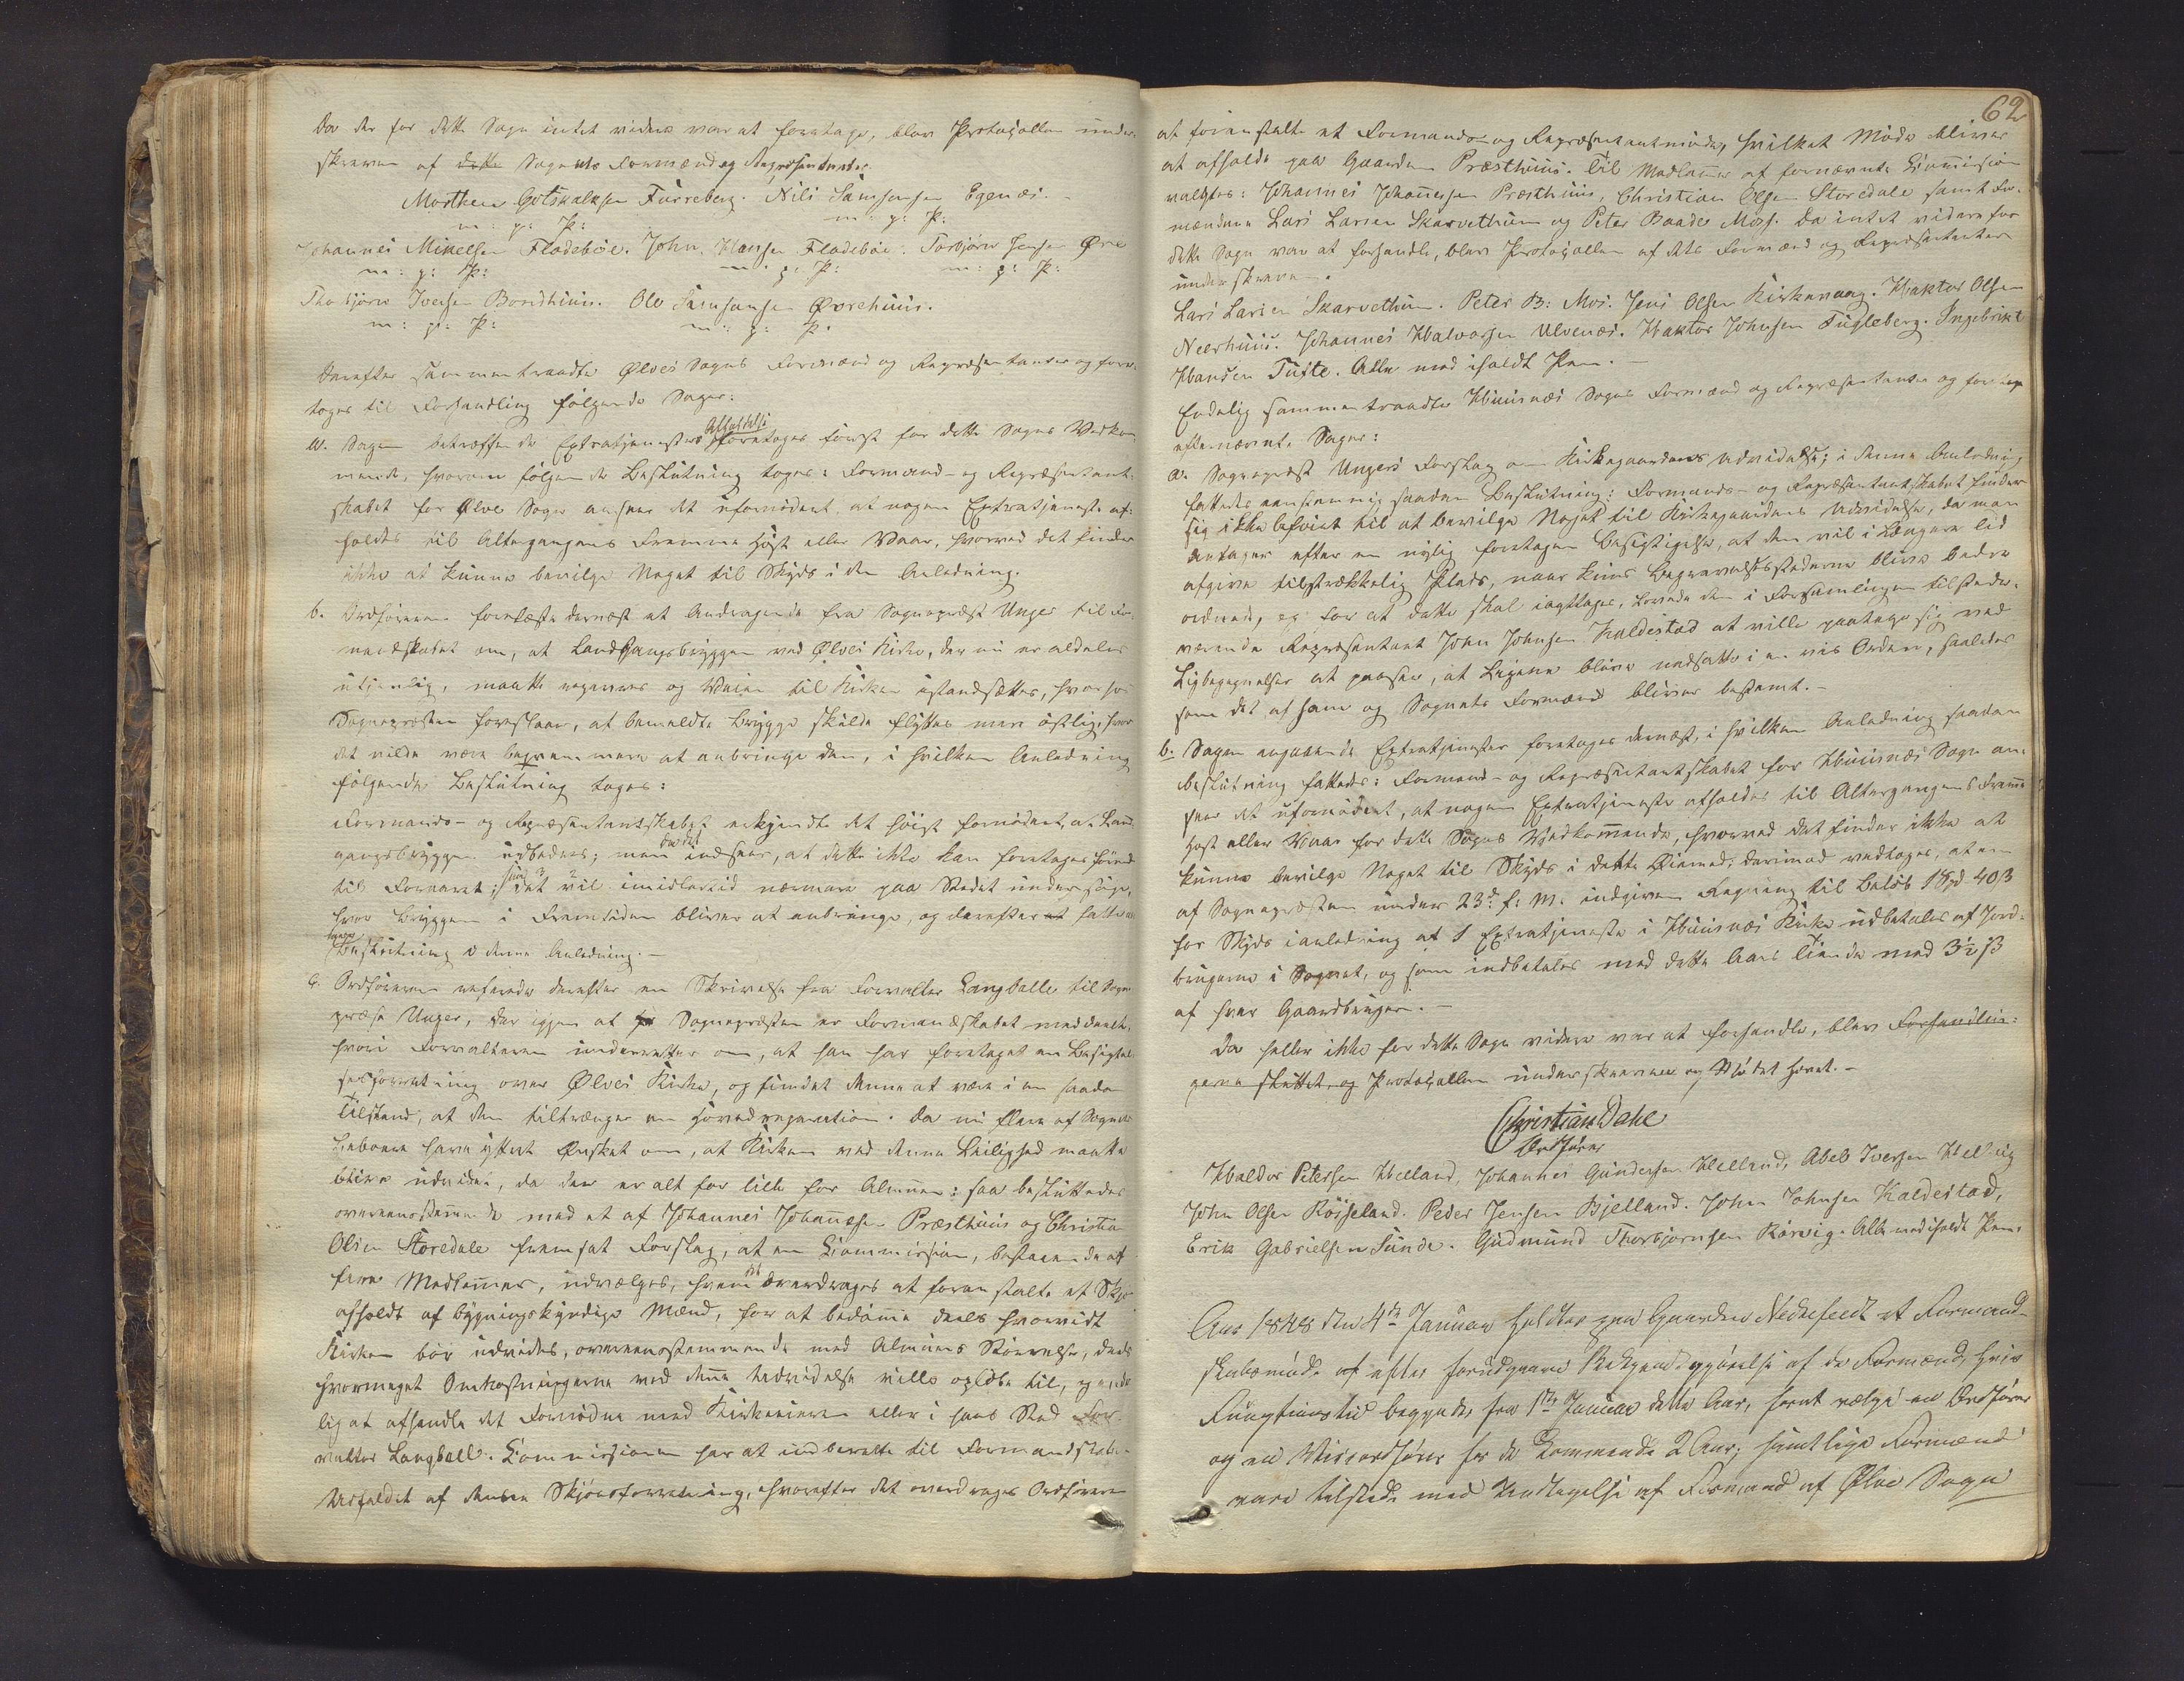 Da der for dette Sogn intet videre var at foretage, blev Protocollen under-
skreven af dette Sogns Formænd og Repræsentanter
Morthen Gotskalksen Furreberg. Nils Samsonsen Egenæs.
m: p: P: m: p: P:
Johannes Mikelsen Fladebøe. John Hansen Fladebøe. Torbjørn Jensen Øvre
m: p: P: m: p: P: m: p: P:
Thorbjørn Iversen Bondhuus. Ole Samsonsen Øvrehuus.
m: p: P: m: p: P:
Derefter sammentraadte Ølves Sogns Formænd og Repræsentanter og fore-
toges til Forhandling følgende Sager:
a. Sagen betræffende Extratjenesters Afholdelse foretoges først for dette Sogns Vedkom-
mende, hvorom følgende Beslutning toges: Formands- og Repræsentant-
skabet for Ølve Sogn ansees det ufornødent, at nogen Extratjeneste af-
holdes til Altergangens Fremme Høst eller Vaar, hvorved det finder
ikke at kunne bevilge Noget til Skyds i den Anledning.
b. Ordføreren forelæste dernæst et Andragende fra Sognepræst Unger til For-
mandskabet om, at Landgangsbryggen ved Ølves Kirke, der nu er aldeles
utjenlig, maatte repareres og Veien til Kirken istandsættes, hvorhos
Sognepræsten foreslaaer, at bemeldte Brygge skulde flyttes mere østlig, hvor
det vilde være beqvemmere at anbringe den, i hvilken Anledning
følgende Beslutning toges:
Formands- og Repræsentantskabet erkjendte det høist fornødent, at Land-
gangsbryggen udbedres; men da det indsees, at dette ikke kan foretages førend
til Foraaret; saa vil det imidlertid nærmere paa Stedet undersøge,
hvor Bryggen i Fremtiden bliver at anbringe, og derefter at fatte
Beslutning i denne Anledning.
c. Ordføreren refererede derefter en Skrivelse fra Forvalter Langballe til Sogne-
præst Unger, der igjen af Sognepræsten er Formandskabet meddeelt,
hvori Forvalteren underretter om, at han har foretaget en Besigtel-
sesforretning over Ølves Kirke, og fundet denne at være i en saadan
Tilstand, at den tiltrænger en Hovedreparation. Da nu flere af Sognets
Beboere have yttret Ønsket om, at Kirken ved denne Leilighed maatte
blive udvidet, da den er alt for lille for Almuen: saa besluttedes
overeensstemmende med et af Johannes Johannesen Præsthuus og Christian
Olsen Storedale fremsat Forslag, at en Commission, bestaaende af
fire Medlemmer, udvælges, hvem det overdrages at foranstalte et Skjøn
afholdt af bygningskyndige Mænd, for at bedømme deels hvorvidt
Kirken bør udvides, overeensstemmende med Almuens Størrelse, deels
hvormeget Omkostningerne ved denne Udvidelse ville opløbe til, og ende-
lig at afhandle det Fornødne med Kirkeeieren eller i hans Sted For-
valter Langball. Commissionen har at indberette til Formandskabet
Udfaldet af denne Skjønsforretning, hvorefter det overdrages Ordføreren
62
at foranstalte et Formands- og Repræsentantmøde, hvilket Møde bliver
at afholde paa Gaarden Præsthuus. Til Medlemmer af fornævnte Commission
valgtes: Johannes Johannesen Præsthuus, Christian Olsen Storedale samt For-
mændene Lars Larsen Skarvethuun og Peter Baade Moss. Da intet videre for
dette Sogn var at forhandle, blev Protocollen af dets Formænd og Repræsentanter
underskreven.
Lars Larsen Skarvethuun. Peter B: Mos. Jens Olsen Kirkevaag. Haktor Olsen
Neerhuus. Johannes Halvorsen Ulvenæs. Haktor Johnsen Fugleberg. Ingebrikt
Hansen Tufte. Alle med iholdt Pen.
Endelig sammentraadte Huusnæs Sogns Formænd og Repræsentanter og foretoge
efternævnte Sager:
a. Sognepræst Ungers Forslag om Kirkegaardens Udvidelse; i denne Anledning
fattedes eenstemmig saadan Beslutning: Formands- og Repræsentantskabet finder
sig ikke beføiet til at bevilge Noget til Kirkegaardens Udvidelse, da man
antager efter en nylig foretagen Besigtigelse, at den vil i længere Tid
afgive tilstrækkelig Plads, naar kuns Begravelsesstederne blive bedre
ordnede, og for at dette skal iagttages, lovede den i Forsamlingen tilstede-
værende Repræsentant John Johnsen Kaldestad at ville paatage sig ved
Ligbegjengelser at paasee, at Ligene blive nedsatte i en vis Orden, saaledes
som det af ham og Sognets Formænd bliver bestemt.
b. Sagen angaaende Extratjenester foretoges dernæst, i hvilken Anledning saadan
Beslutning fattedes: Formand- og Repræsentantskabet for Huusnæs Sogn an-
seer det ufornødent, at nogen Extratjeneste afholdes til Altergangens Fremme
Høst eller Vaar for dette Sogns Vedkommende, hvorved det finder ikke at
kunne bevilge Noget til Skyds i dette Øiemed; derimod vedtoges, at en
af Sognepræsten under 23d f: M: indgiven Regning til Beløb 1 Spd 40 ß
for Skyds i anledning af 1 Extratjeneste i Huusnæs Kirke udbetales af Jord-
brugerne i Sognet, og som indbetales med dette Aars Tiende med 3½ ß
af hver Gaardbruger.
Da heller ikke for dette Sogn videre var at forhandle, blev Forhandlin-
gerne sluttet, og Protocollen underskreven og Mødet hævet.
Christian Dahl
Ordfører
Haldor Petersen Helland, Johannes Gundersen Helland, Abel Iversen Helvig
John Olsen Røisseland. Peder Jensen Bjelland. John Johnsen Kaldestad,
Erik Gabrielsen Sunde. Gudmund Thorbjørnsen Rørvig. Alle med iholdt Pen.
Aar 1848 den 4de Januar holdtes paa Gaarden Nedrefeedt et Formand-
skabsmøde efter forudgaaen Bekjendtgjørelse af de Formænd, hvis
Functionstid begyndte fra 1ste Januar dette Aar, for at vælge en Ordfører
og en Viceordfører for de kommende 2 Aar; samtlige Formænd
vare tilstede med Undtagelse af Formænd af Ølve Sogn